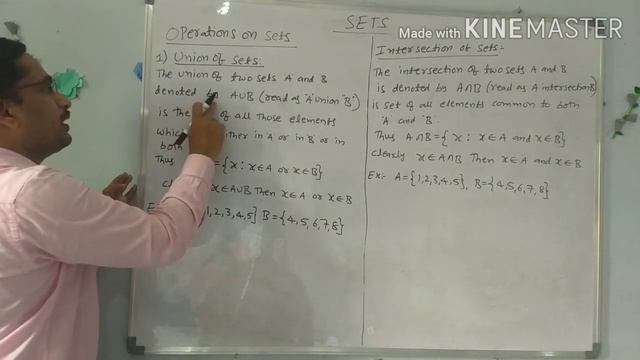 SETS
Made with KINEMASTER
Operations on Sets
1) Union of Sets:
The union of two sets A and B
denoted by A∪B (read as 'A' union 'B')
is the of all those elements
in A or in B or in
both
Thus = { x : x∈A or x∈B }
x∈A∪B Then x∈A or x∈B
1,2,3,4,5} B={4,5,6,7,8}
Intersection of Sets:-
The intersection of two sets A and B
is denoted by A∩B (read as A intersection B)
is set of all elements common to both
'A' and 'B'.
Thus A∩B = { x : x∈A and x∈B }
clearly x∈A∩B Then x∈A and x∈B.
Ex:- A={1,2,3,4,5}, B={4,5,6,7,8}